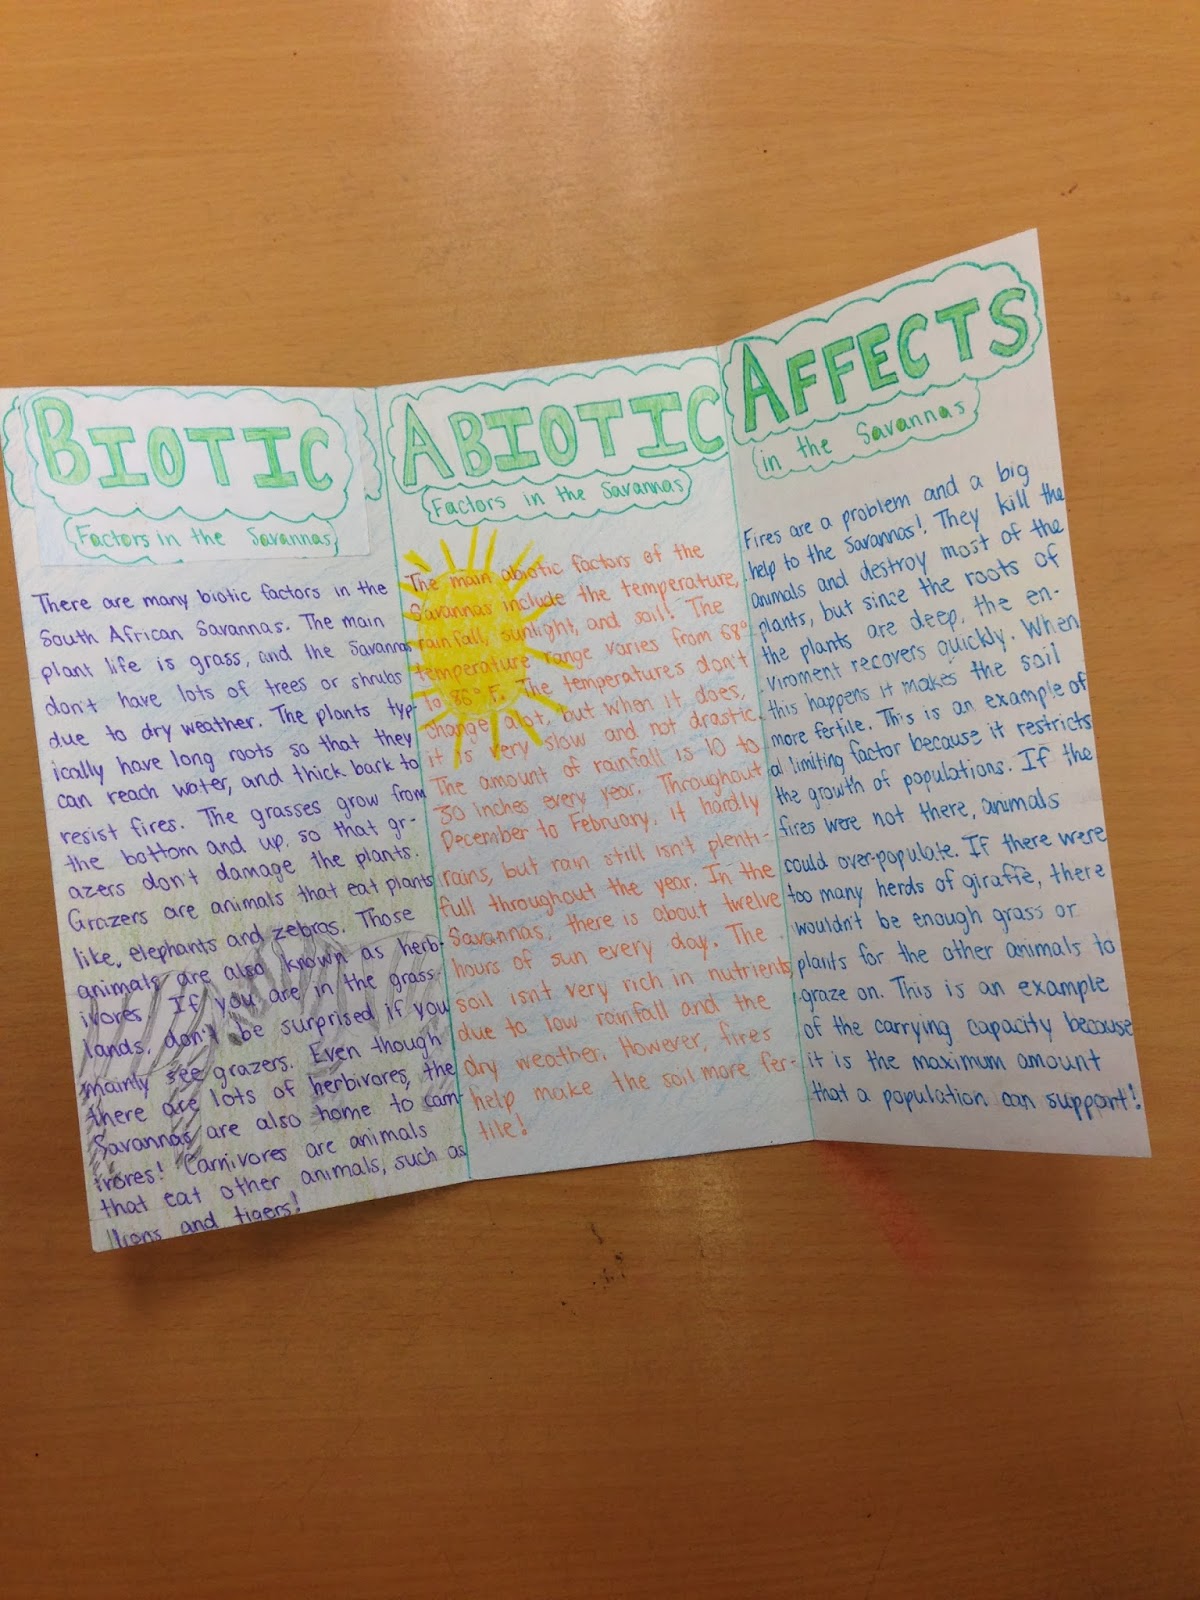 BIOTIC
Factors in the Savannas
There are many biotic factors in the
South African Savannas. The main
plant life is grass, and the Savannas
don't have lots of trees or shrubs
due to dry weather. The plants typ-
ically have long roots so that they
can reach water, and thick bark to
resist fires. The grasses grow from
the bottom and up, so that gr-
azers don't damage the plants.
Grazers are animals that eat plants
like, elephants and zebras. Those
animals are also known as herb-
ivores. If you are in the grass-
lands, don't be surprised if you
mainly see grazers. Even though
there are lots of herbivores, the
Savannas are also home to carn-
ivores! Carnivores are animals
that eat other animals, such as
lions and tigers!
ABIOTIC
Factors in the Savannas
The main abiotic factors of the
Savannas include the temperature,
rainfall, sunlight, and soil! The
temperature range varies from 68°
to 86° F. The temperatures don't
change alot, but when it does,
it is very slow and not drastic.
The amount of rainfall is 10 to
30 inches every year. Throughout
December to February, it hardly
rains, but rain still isn't plenti-
full throughout the year. In the
Savannas, there is about twelve
hours of sun every day. The
soil isn't very rich in nutrients
due to low rainfall and the
dry weather. However, fires
help make the soil more fer-
tile!
AFFECTS
in the Savannas
Fires are a problem and a big
help to the Savannas! They kill the
animals and destroy most of the
plants, but since the roots of
the plants are deep, the en-
viroment recovers quickly. When
this happens it makes the soil
more fertile. This is an example of
a limiting factor because it restricts
the growth of populations. If the
fires were not there, animals
could over-populate. If there were
too many herds of giraffe, there
wouldn't be enough grass or
plants for the other animals to
graze on. This is an example
of the carrying capacity because
it is the maximum amount
that a population can support!